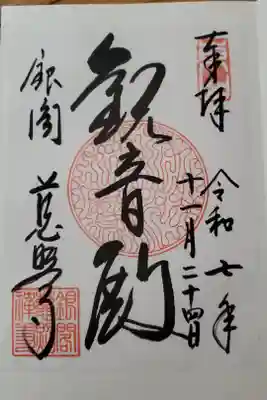 奉拝
令和七年
十一月二十四日
観音殿
銀閣
慈照寺